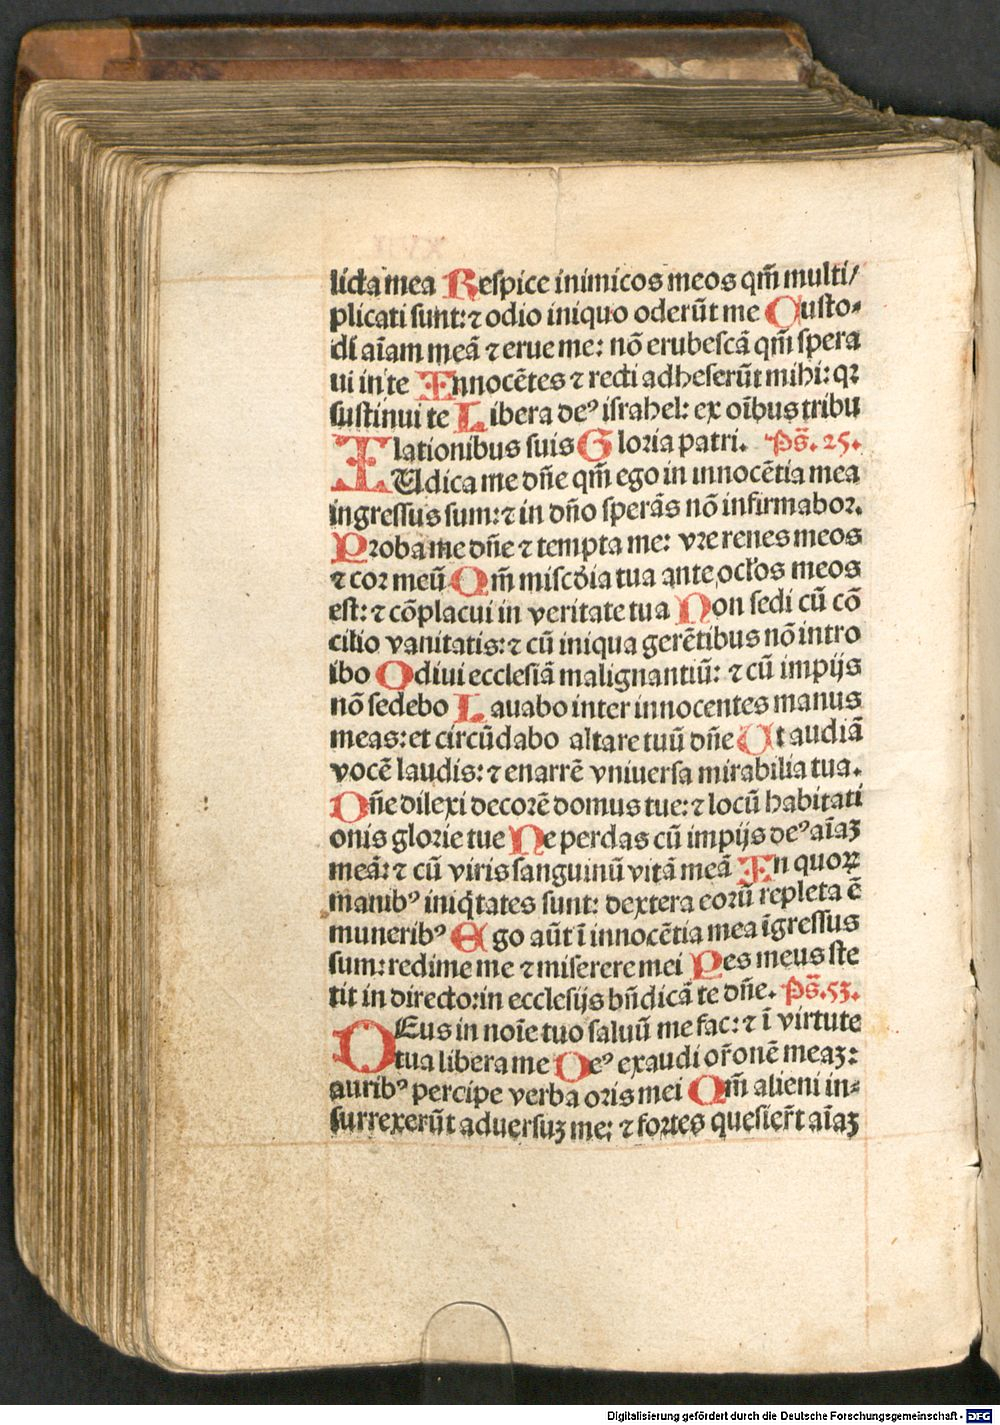 licta mea Respice inimicos meos qm̄ multi/
plicati sunt: ⁊ odio iniquo oderūt me Custo-
di aīam meā ⁊ erue me: nō erubescā qm̄ spera
ui in te Innocētes ⁊ recti adheserūt mihi: qꝛ
sustinui te Libera deꝰ israhel: ex oībus tribu
lationibus suis Gloria patri. Ps̄. 25.
IUdica me dn̄e qm̄ ego in innocētia mea
ingressus sum: ⁊ in dn̄o sperās nō infirmabor.
Proba me dn̄e ⁊ tempta me: vre renes meos
⁊ cor meū Qm̄ miscd̄ia tua ante ocl̓os meos
est: ⁊ cōplacui in veritate tua Non sedi cū cō
cilio vanitatis: ⁊ cū iniqua gerētibus nō intro
ibo Odiui ecclesiā malignantiū: ⁊ cū impijs
nō sedebo Lauabo inter innocentes manus
meas: et circūdabo altare tuū dn̄e Ut audiā
vocē laudis: ⁊ enarrē vniuersa mirabilia tua.
Dn̄e dilexi decorē domus tue: ⁊ locū habitati
onis glorie tue Ne perdas cū impijs deꝰ aīaꝫ
meā: ⁊ cū viris sanguinū vitā meā In quoꝝ
manibꝰ iniq̇tates sunt: dextera eorū repleta ē
muneribꝰ Ego aūt ī innocētia mea īgressus
sum: redime me ⁊ miserere mei Pes meus ste
tit in directo: in ecclesijs bn̄dicā te dn̄e. Ps̄. 53.
DEus in noīe tuo saluū me fac: ⁊ ī virtute
tua libera me Deꝰ exaudi or̄onē meaꝫ:
auribꝰ percipe verba oris mei Qm̄ alieni in-
surrexerūt aduersuꝫ me: ⁊ fortes quesier̄t aīaꝫ
Digitalisierung gefördert durch die Deutsche Forschungsgemeinschaft - DFG